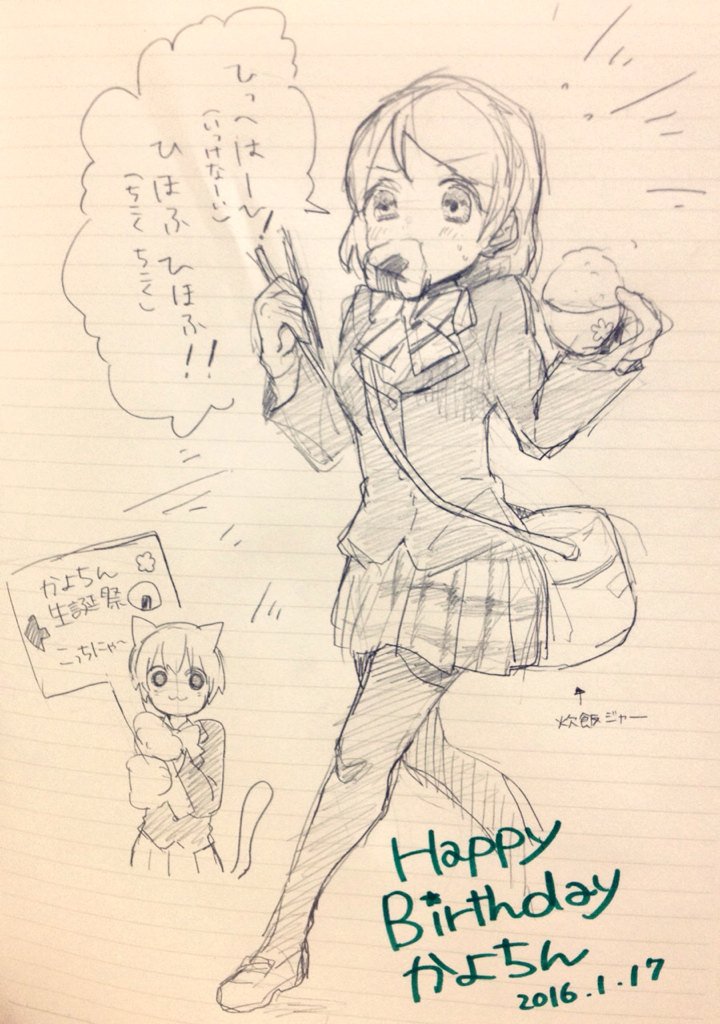 ひっへはー〜!
(いっけなーい)
ひほふ ひほふ!!
(ちこく ちこく)
かよちん
生誕祭
こっちにゃ〜
炊飯ジャー
Happy
Birthday
かよちん
2016.1.17